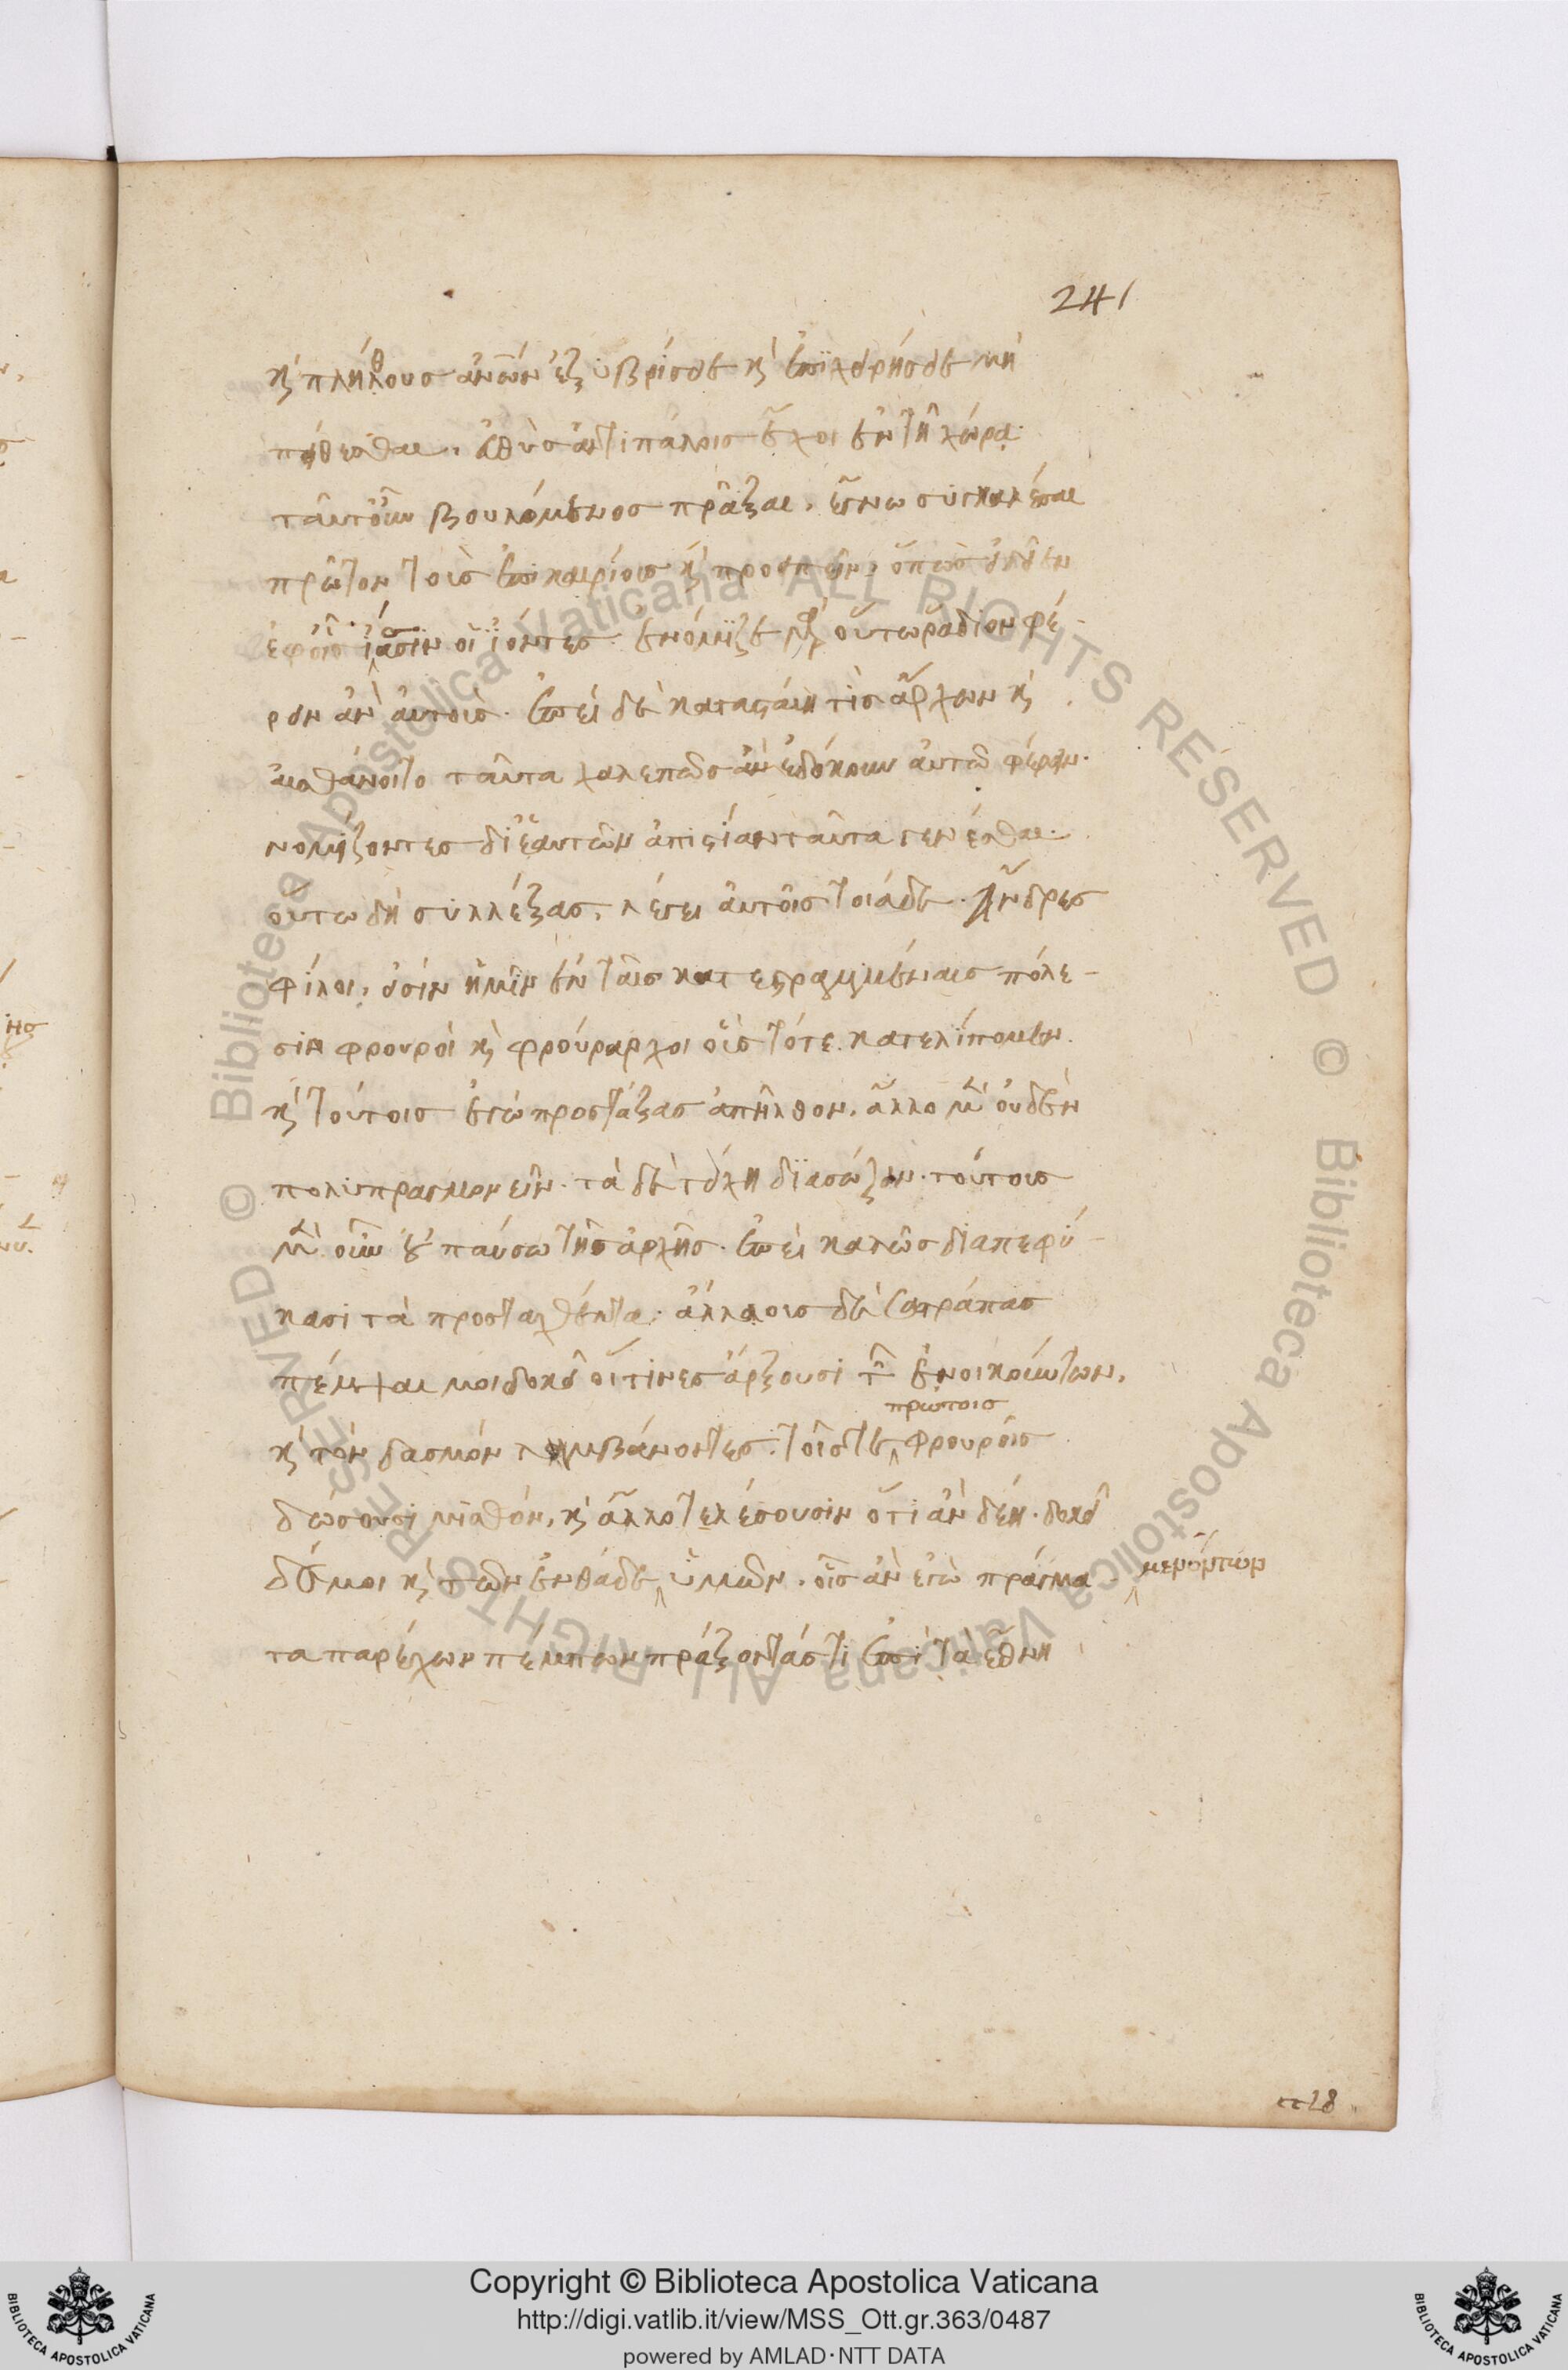 241
κ πλήθους ἀνων ἐξυβρίσειε κ ἐπιχειρήσειε μὴ
πείθεσθαι, εὐθὺς ἀντιπάλους ἔχοι ἐν τῇ χώρα.
ταῦτ οὖν βουλόμενος πρᾶξαι, ἔγνω συγκαλέσαι
πρῶτον τοὺς ἐπικαιρίους κ προειπεῖν, ὅπως εἰδεῖεν
ἐφ οἷς ἴασιν οἱ ἰόντες. ἐνόμιζε γὰρ οὕτω ῥάδιον φέ-
ρειν ἂν αὐτοὺς. ἐπεὶ δὲ κατασταίη τὶς ἄρχων κ
αἰσθάνοιτο ταῦτα χαλεπῶς ἂν ἐδόκουν αὐτῶ φέρειν.
νομίζοντες δι ἑαυτῶν ἀπιστίαν ταῦτα γενέσθαι.
οὕτω δὴ συλλέξας, λέγει αὐτοῖς τοιάδε. Ἄνδρες
φίλοι, εἰσὶν ἡμῖν ἐν ταῖς κατεστραμμέναις πόλε-
σιν φρουροὶ κ φρούραρχοι οὓς τότε κατελίπομεν.
κ τούτοις ἐγὼ προστάξας ἀπῆλθον, ἄλλο μὲν οὐδὲν
πολυπραγμονεῖν. τὰ δὲ τείχη διασώζειν. τούτους
μὲν οὖν οὐ παύσω τῆς ἀρχῆς. ἐπεὶ καλῶς διαπεφύ-
κασι τὰ προσταχθέντα. ἄλλους δὲ σατράπας
πέμψαι μοι δοκεῖ οἵτινες ἄρξουσι τῶν ἐνοικούντων,
κ τὸν δασμὸν λαμβάνοντες. τοῖς τε πρώτοις φρουροῖς
δώσουσι μισθὸν, κ ἄλλο τελέσουσιν ὅτι ἂν δέη. δοκεῖ
δέ μοι κ τῶν ἐνθάδε μενόντων ὑμῶν. οἷς ἂν ἐγὼ πράγμα-
τα παρέχων πέμπων πράξοντάς τι ἐπὶ τὰ ἔθνη
Copyright © Biblioteca Apostolica Vaticana
http://digi.vatlib.it/view/MSS_Ott.gr.363/0487
powered by AMLAD·NTT DATA